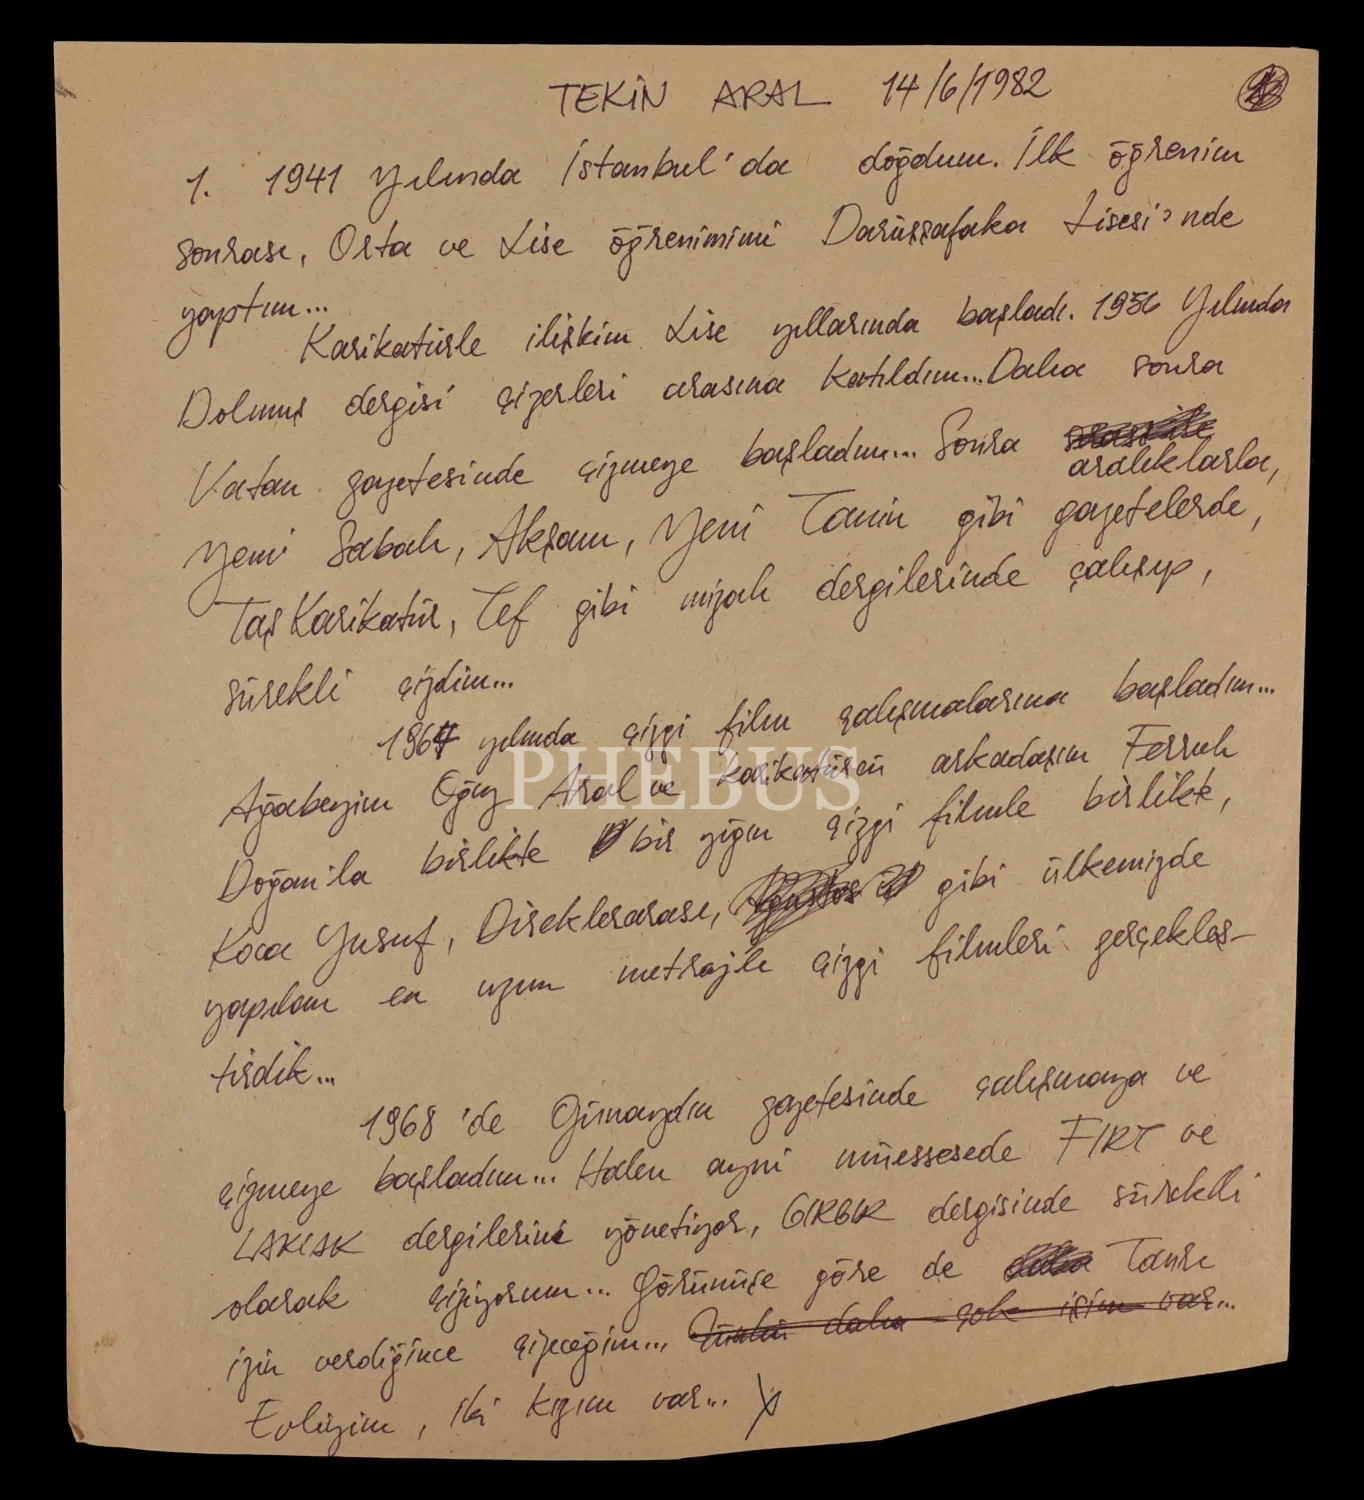 TEKİN ARAL 14/6/1982
1. 1941 Yılında İstanbul'da doğdum. İlk öğrenim
sonrası, Orta ve Lise öğrenimimi Darüşşafaka Lisesi'nde
yaptım...
Karikatürle ilişkim Lise yıllarında başladı. 1956 Yılında
Dolmuş dergisi çizerleri arasına katıldım... Daha sonra
Vatan gazetesinde çizmeye başladım... Sonra
aralıklarla,
Yeni Sabah, Akşam, Yeni Tanin gibi gazetelerde,
Taş Karikatür, Tef gibi mizah dergilerinde çalışıp,
sürekli çizdim...
1964 yılında çizgi film çalışmalarına başladım...
PHEBUS
Ağabeyim Oğuz Aral ve karikatürcü arkadaşım Ferruh
Doğan'la birlikte bir yığın çizgi filmle birlikte,
Koca Yusuf, Direklerarası, gibi ülkemizde
yapılan en uzun metrajlı çizgi filmleri gerçekleş-
tirdik...
1968'de Günaydın gazetesinde çalışmaya ve
çizmeye başladım... Halen ayni müessesede FIRT ve
LAKLAK dergilerini yönetiyor, GIRGIR dergisinde sürekli
olarak çiziyorum... Görünüşe göre de Tanrı
izin verdiğince çizeceğim... Çünkü daha çok işim var...
Evliyim, iki kızım var...